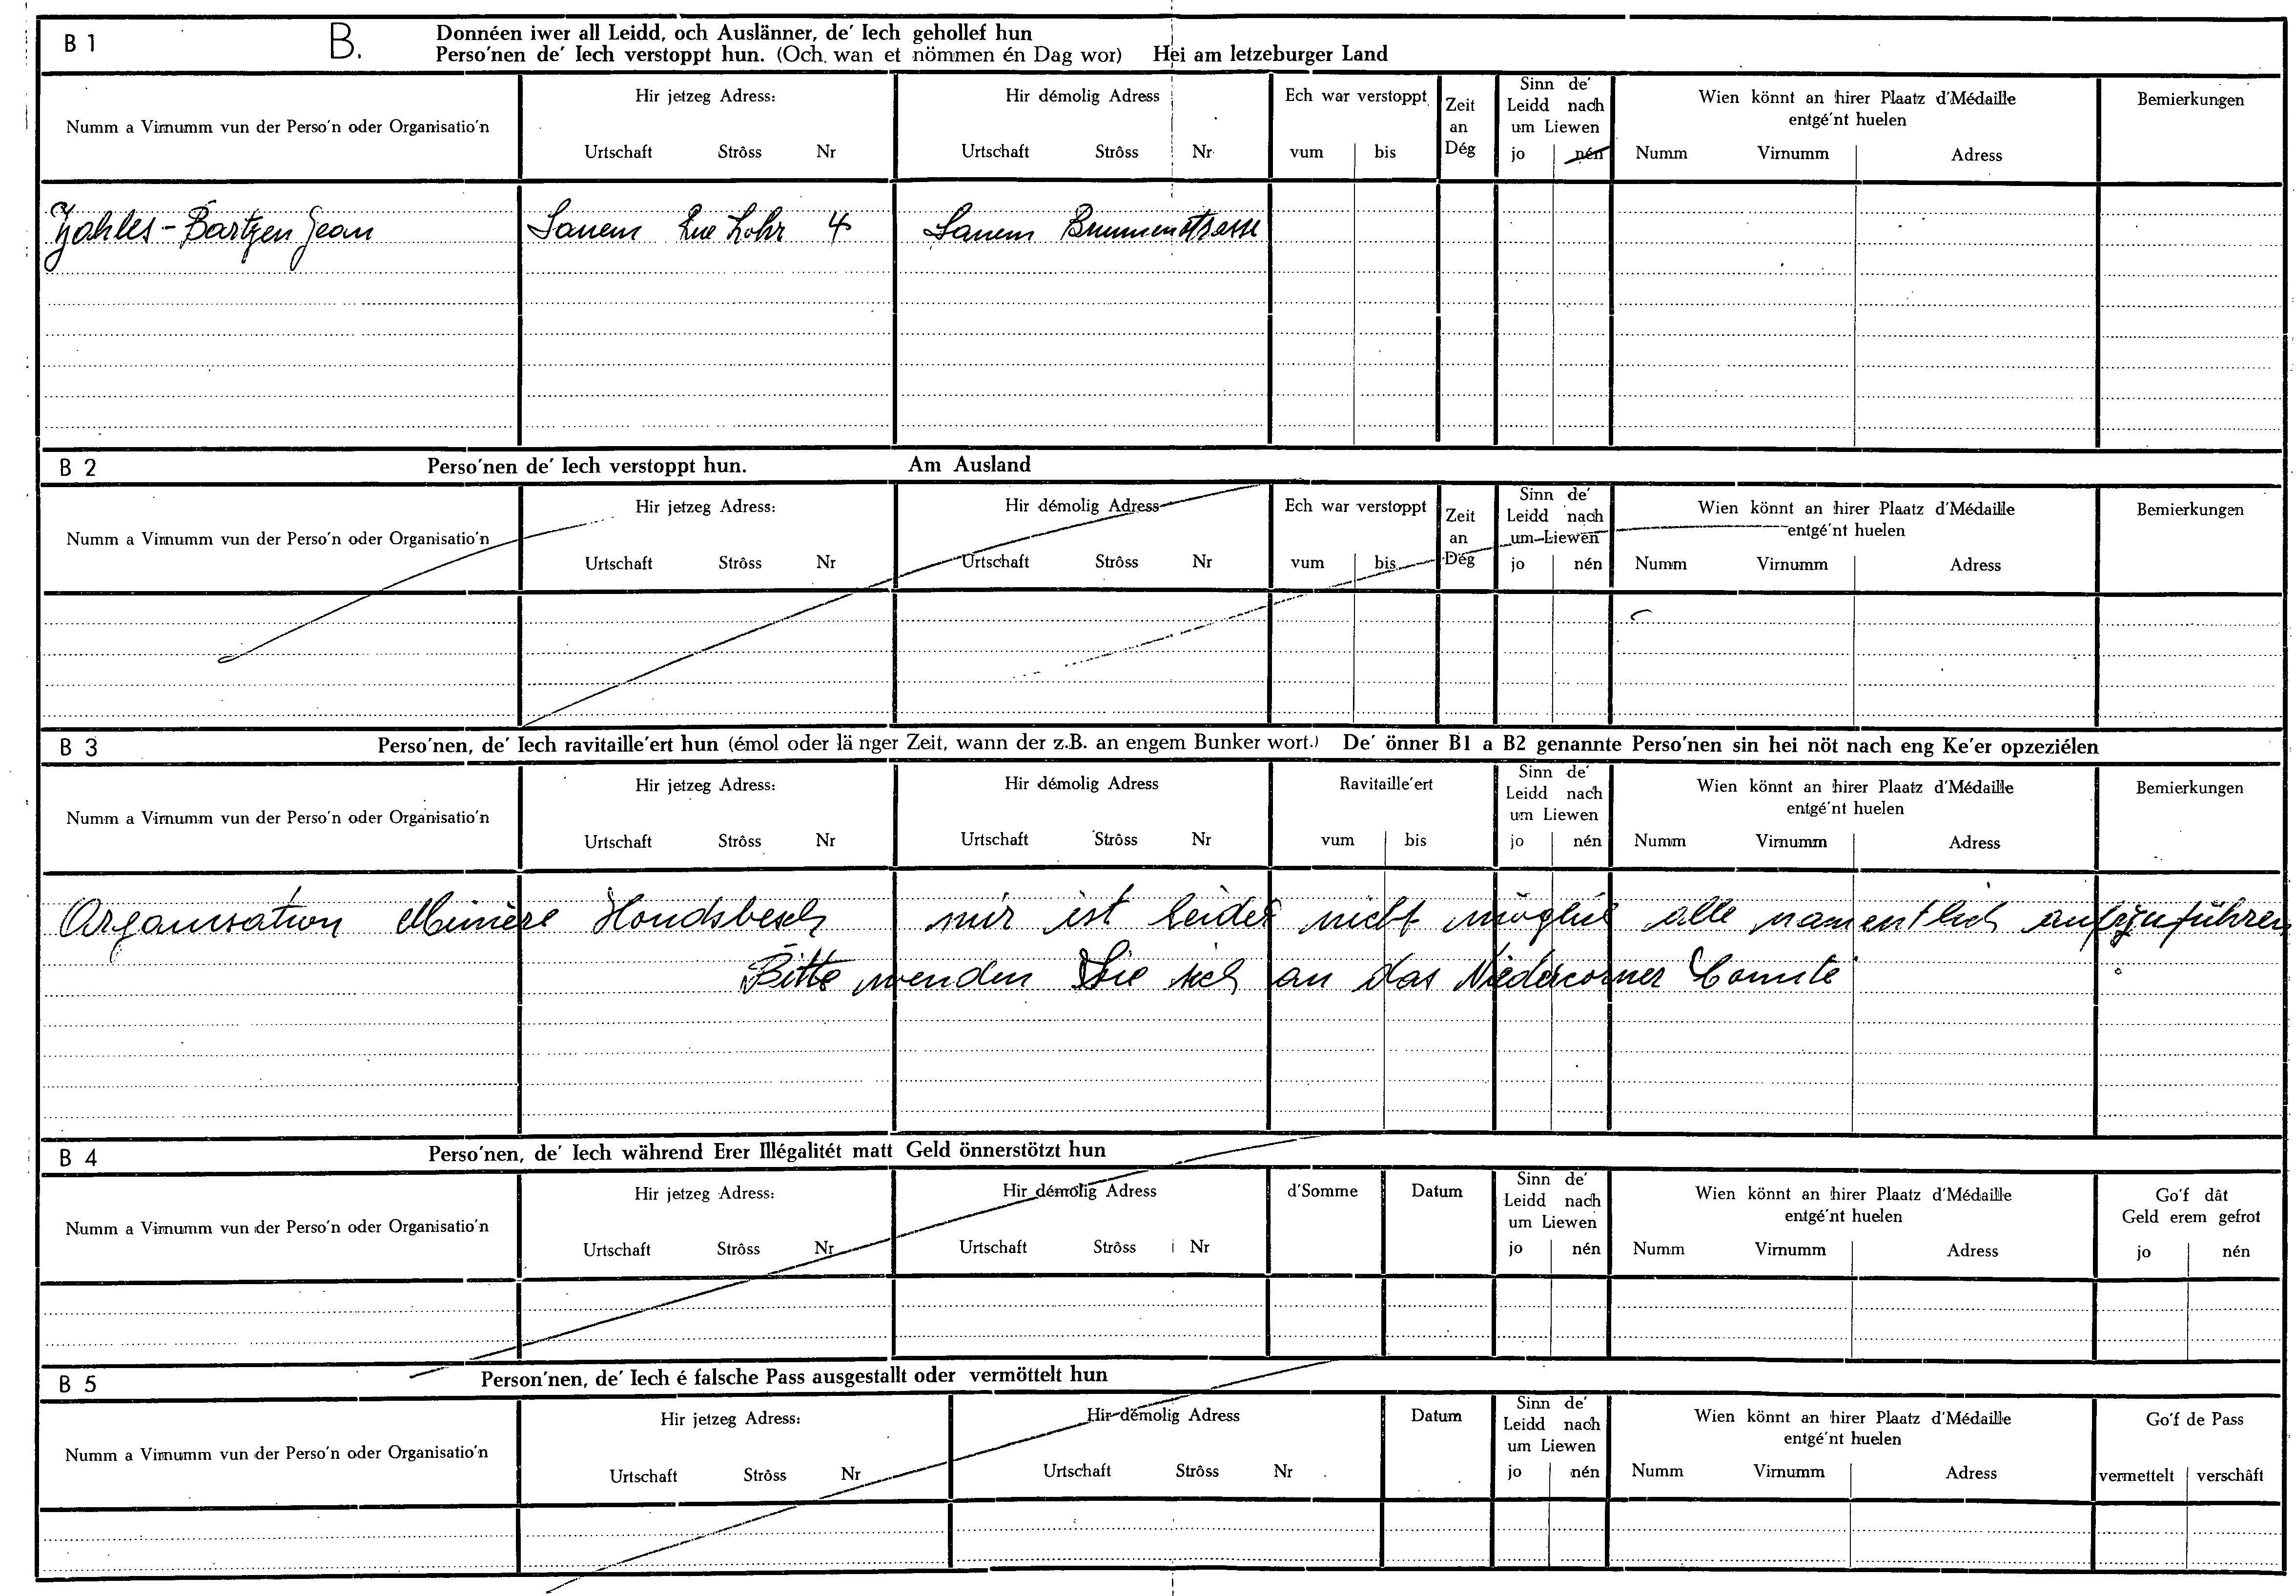 B 1 B. Donnéen iwer all Leidd, och Auslänner, de' Iech gehollef hun
Perso'nen de' Iech verstoppt hun. (Och wan et nömmen én Dag wor) Hei am letzeburger Land
Numm a Virnumm vun der Perso'n oder Organisatio'n
Hir jetzeg Adress:
Urtschaft Strôss Nr
Hir démolig Adress
Urtschaft Strôss Nr
Ech war verstoppt
vum bis
Zeit
an
Dég
Sinn de'
Leidd nach
um Liewen
jo nén
Wien könnt an hirer Plaatz d'Médaille
entgé'nt huelen
Numm Virnumm Adress
Bemierkungen
Bartzen Jean Sanem 4 Sanem Brunnenstrasse
B 2 Perso'nen de' Iech verstoppt hun. Am Ausland
Numm a Virnumm vun der Perso'n oder Organisatio'n
Hir jetzeg Adress:
Urtschaft Strôss Nr
Hir démolig Adress
Urtschaft Strôss Nr
Ech war verstoppt
vum bis
Zeit
an
Dég
Sinn de'
Leidd nach
um Liewen
jo nén
Wien könnt an hirer Plaatz d'Médaille
entgé'nt huelen
Numm Virnumm Adress
Bemierkungen
B 3 Perso'nen, de' Iech ravitaille'ert hun (émol oder länger Zeit, wann der z.B. an engem Bunker wort.) De' önner B1 a B2 genannte Perso'nen sin hei nöt nach eng Ke'er opzeziélen
Numm a Virnumm vun der Perso'n oder Organisatio'n
Hir jetzeg Adress:
Urtschaft Strôss Nr
Hir démolig Adress
Urtschaft Strôss Nr
Ravitaille'ert
vum bis
Sinn de'
Leidd nach
um Liewen
jo nén
Wien könnt an hirer Plaatz d'Médaille
entgé'nt huelen
Numm Virnumm Adress
Bemierkungen
Organisation Minière Hondsbesch mir ist leider nicht möglich alle namentlich aufzuführen
Bitte wenden Sie sich an das Niedercorner Comité
B 4 Perso'nen, de' Iech während Erer Illégalitét matt Geld önnerstötzt hun
Numm a Virnumm vun der Perso'n oder Organisatio'n
Hir jetzeg Adress:
Urtschaft Strôss Nr
Hir démolig Adress
Urtschaft Strôss Nr
d'Somme
Datum
Sinn de'
Leidd nach
um Liewen
jo nén
Wien könnt an hirer Plaatz d'Médaille
entgé'nt huelen
Numm Virnumm Adress
Go'f dât
Geld erem gefrot
jo nén
B 5 Person'nen, de' Iech é falsche Pass ausgestallt oder vermöttelt hun
Numm a Virnumm vun der Perso'n oder Organisatio'n
Hir jetzeg Adress:
Urtschaft Strôss Nr
Hir démolig Adress
Urtschaft Strôss Nr
Datum
Sinn de'
Leidd nach
um Liewen
jo nén
Wien könnt an hirer Plaatz d'Médaille
entgé'nt huelen
Numm Virnumm Adress
Go'f de Pass
vermettelt verschâft